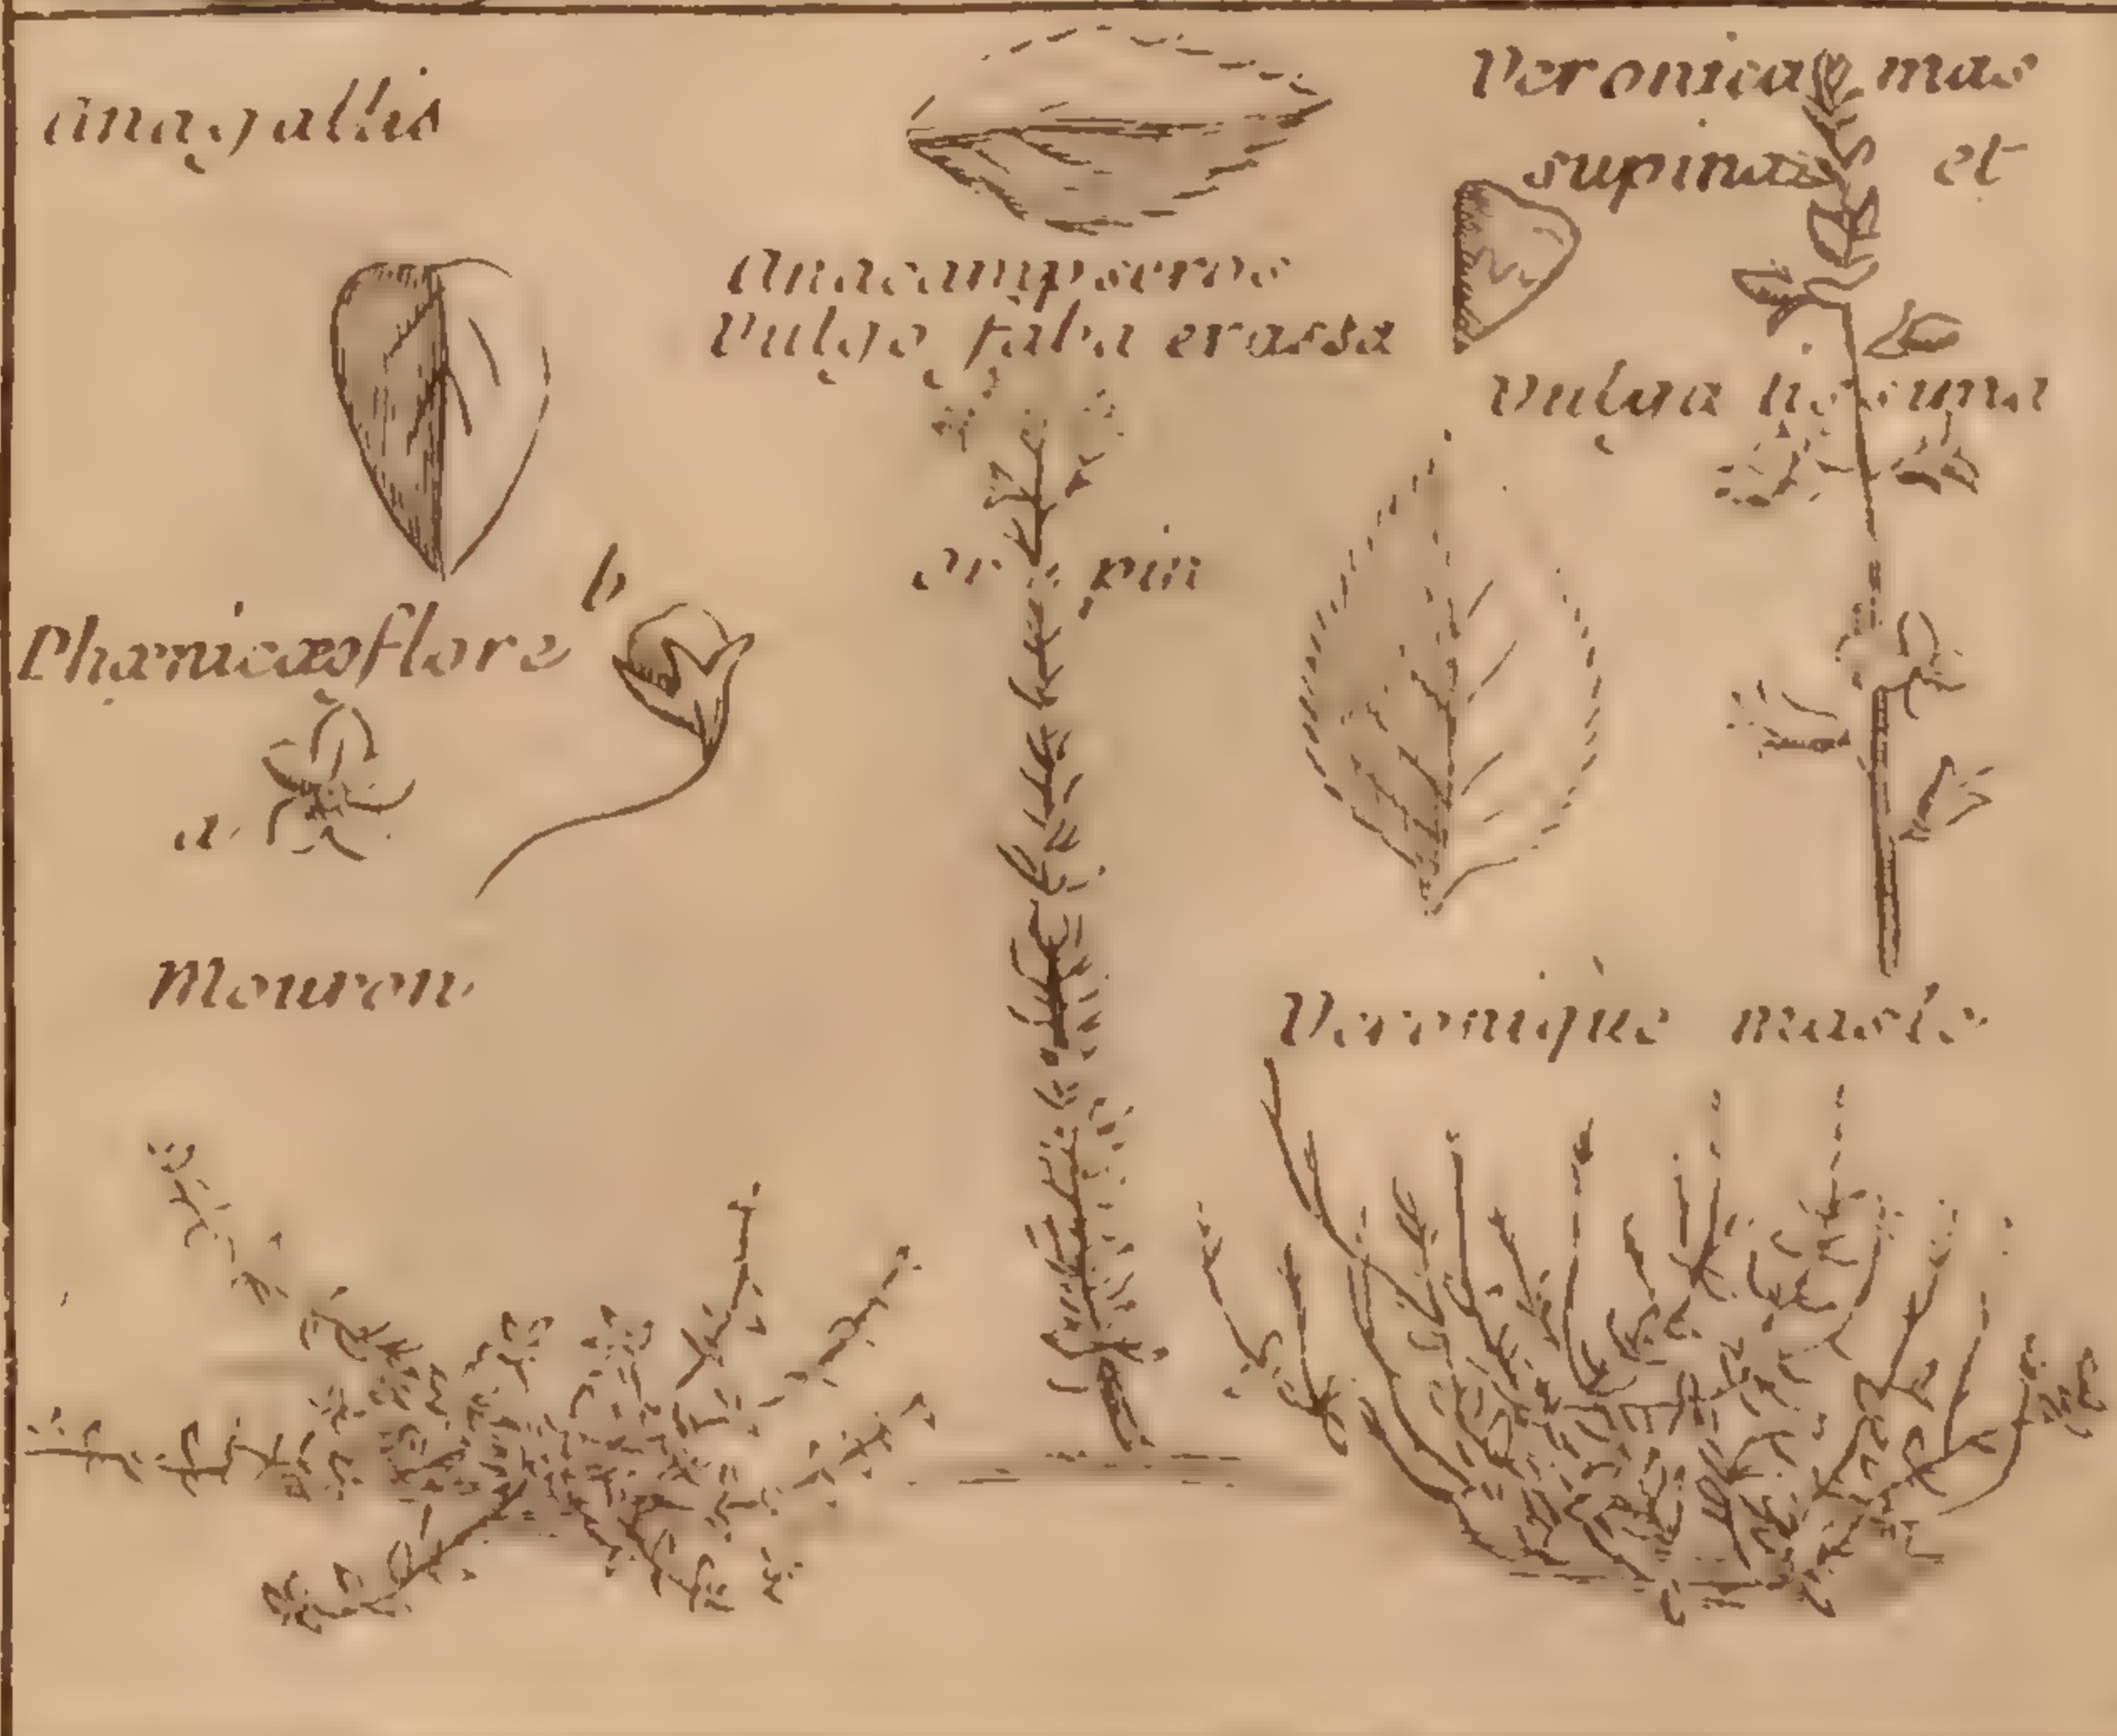 anagallis
Phæniceo flore
b
a
Mouron
Anacampseros
Vulgo faba crassa
orpin
Veronica mas
supina et
vulgatissima
Veronique masle